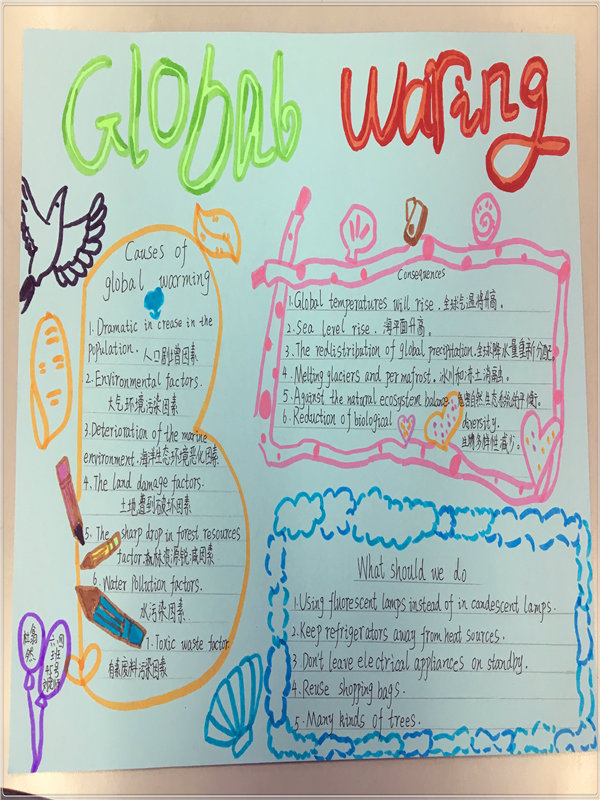 Global Waring
Causes of
global warming
1. Dramatic in crease in the
population. 人口剧增因素
2. Environmental factors.
大气环境污染因素
3. Deterioration of the marine
environment. 海洋生态环境恶化因素.
4. The land damage factors.
土地遭到破坏因素
5. The sharp drop in forest resources
factor. 森林资源锐减因素
6. Water Pollution factors.
水污染因素.
7. Toxic waste factor.
有毒废料污染因素
Consequences
1. Global temperatures will rise. 全球气温将升高.
2. Sea level rise. 海平面升高.
3. The redistribation of global precipitation. 全球降水量重新分配.
4. Melting glaciers and permafrost. 冰川和冻土消融.
5. Against the natural ecosystem balance. 自然生态系统的平衡.
6. Reduction of biological diversity.
多样性减少.
What should we do
1. Using fluorescent lamps instead of in candescent lamps.
2. Keep refrigerators away from heat sources.
3. Don't leave electrical appliances on standby.
4. Reuse shopping bags.
5. Many kinds of trees.
六四
班